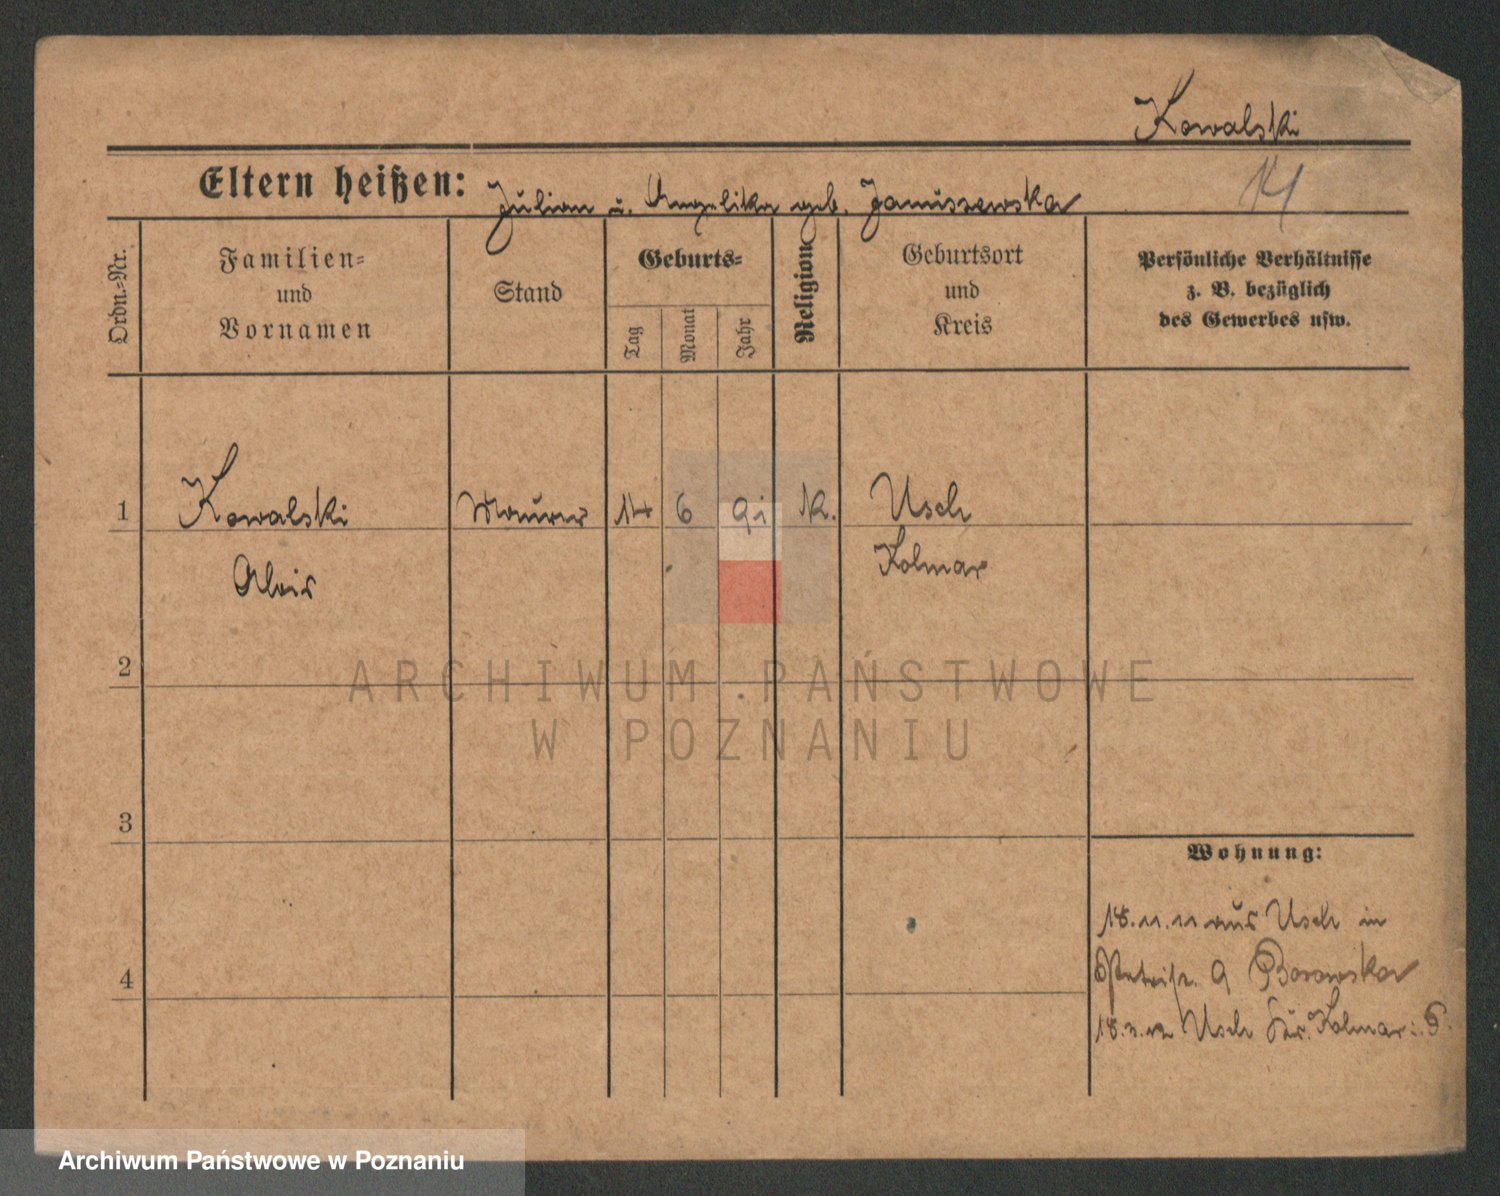 Kowalski
14
Eltern heißen: Julian u. Angelika geb. Januszewska
Ordn.-Nr.
Familien-
und
Vornamen
Stand
Geburts-
Tag
Monat
Jahr
Religion
Geburtsort
und
Kreis
Persönliche Verhältnisse
z. B. bezüglich
des Gewerbes usw.
1 Kowalski Maurer 14 6 91 K. Usch
Alois Kolmar
2
ARCHIWUM PAŃSTWOWE
W POZNANIU
3
Wohnung:
18.11.11 aus Usch in
9 Borowska
4
Usch Kr. Kolmar i. P.
Archiwum Państwowe w Poznaniu